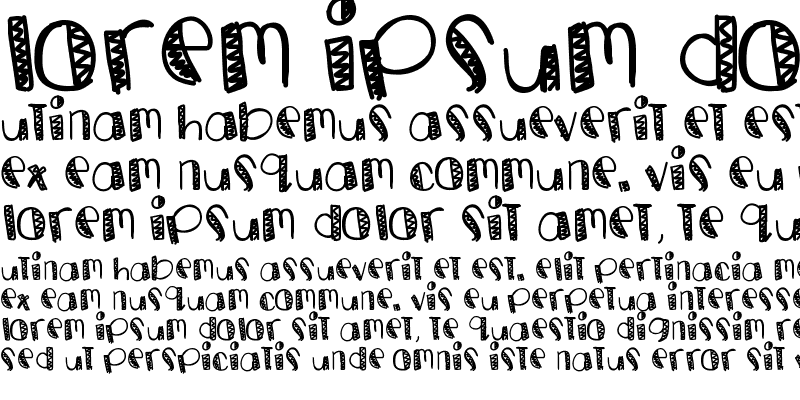 lorem ipsum do
utinam habemus assueverit et est
ex eam nusquam commune. vis eu
lorem ipsum dolor sit amet, te qu
utinam habemus assueverit et est. elit pertinacia me
ex eam nusquam commune. vis eu perpetua interesse
lorem ipsum dolor sit amet, te quaestio dignissim re
sed ut perspiciatis unde omnis iste natus error sit